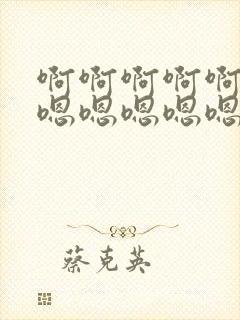 啊啊啊啊啊
嗯嗯嗯嗯嗯
蔡克英